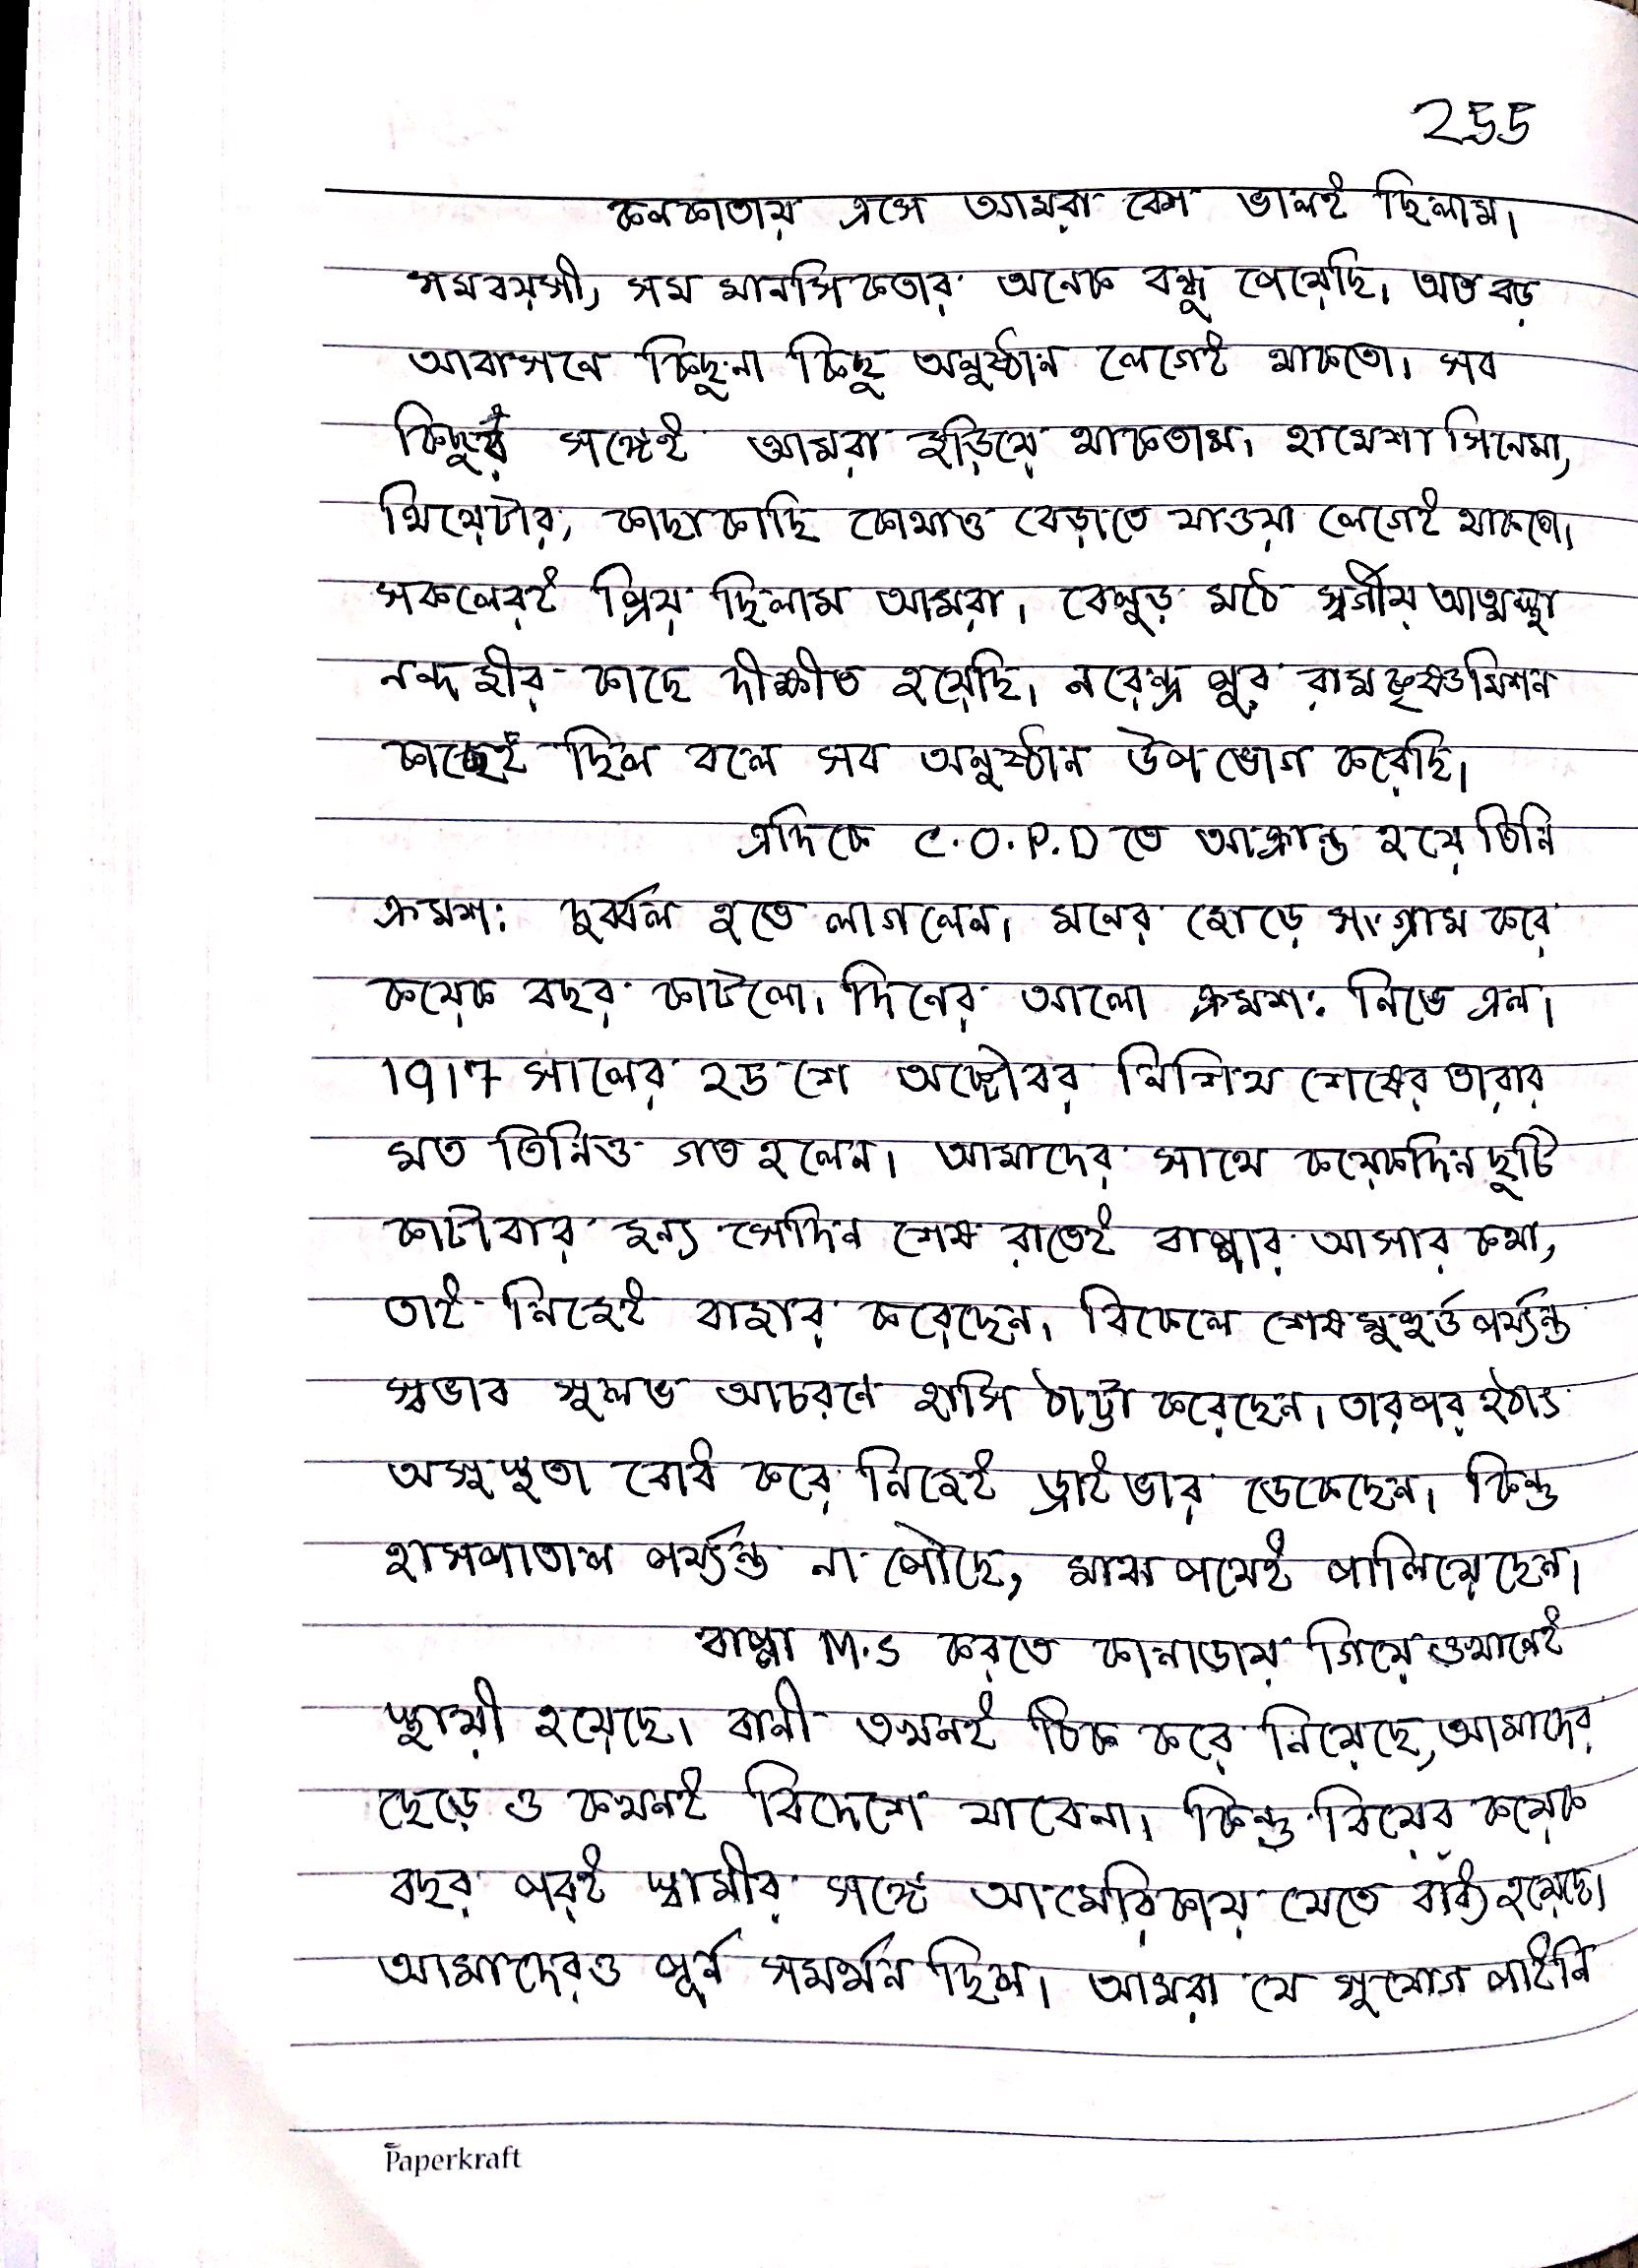 255
কলকাতায় এসে আমরা বেশ ভালই ছিলাম।
সমবয়সী, সম মানসিকতার অনেক বন্ধু পেয়েছি। অত বড়
আবাসনে কিছু না কিছু অনুষ্ঠান লেগেই থাকতো। সব
কিছুর সঙ্গেই আমরা জড়িয়ে থাকতাম। হামেশা সিনেমা,
থিয়েটার, কাছাকাছি কোথাও বেড়াতে যাওয়া লেগেই থাকতো।
সকলেরই প্রিয় ছিলাম আমরা। বেলুড় মঠে স্বর্গীয় আত্মস্থা
নন্দজীর কাছে দীক্ষীত হয়েছি। নরেন্দ্র পুর রামকৃষ্ণমিশন
কাছেই ছিল বলে সব অনুষ্ঠান উপভোগ করেছি।
এদিকে C.O.P.D তে আক্রান্ত হয়ে তিনি
ক্রমশ: দুর্ব্বল হতে লাগলেন। মনের জোড়ে সংগ্রাম করে
কয়েক বছর কাটলো। দিনের আলো ক্রমশ: নিভে এল।
1917 সালের ২৬ শে অক্টোবর নিশিথ শেষের তারার
মত তিনিও গত হলেন। আমাদের সাথে কয়েকদিন ছুটি
কাটাবার জন্য সেদিন শেষ রাতেই বাপ্পার আসার কথা,
তাই নিজেই বাজার করেছেন। বিকেলে শেষ মুহুর্ত পর্য্যন্ত
স্বভাব সুলভ আচরণে হাসি ঠাট্টা করেছেন। তারপর হঠাৎ
অসুস্থতা বোধ করে নিজেই ড্রাইভার ডেকেছেন। কিন্তু
হাসপাতাল পর্য্যন্ত না পৌছে, মাঝ পথেই পালিয়েছেন।
বাপ্পা M.S করতে কানাডায় গিয়ে ওখানেই
স্থায়ী হয়েছে। রানী তখনই ঠিক করে নিয়েছে, আমাদের
ছেড়ে ও কখনই বিদেশে যাবেনা। কিন্তু বিয়ের কয়েক
বছর পরই স্বামীর সঙ্গে আমেরিকায় যেতে বাধ্য হয়েছে।
আমাদেরও পূর্ন সমর্থন ছিল। আমরা যে সুযোগ পাইনি
Paperkraft